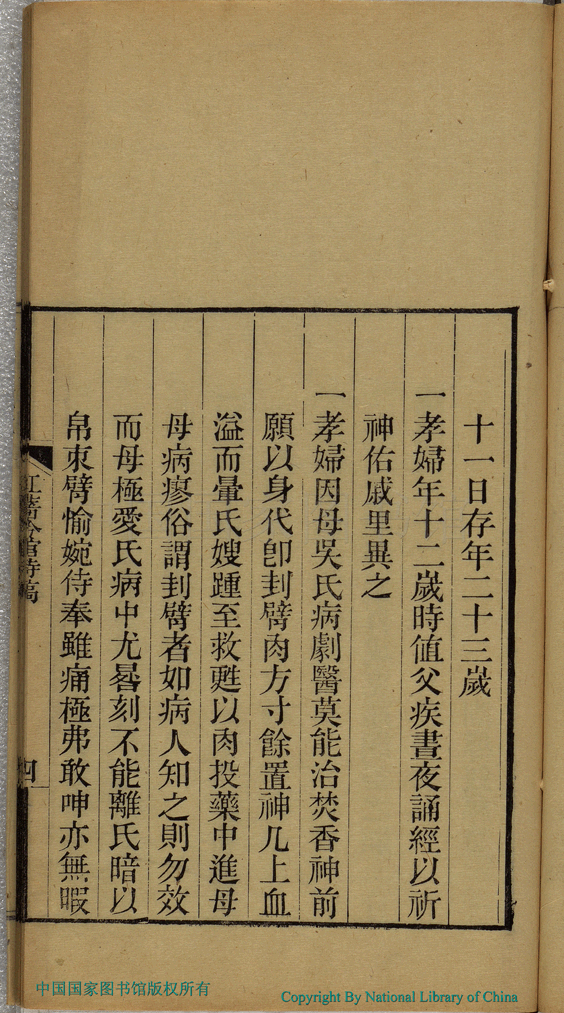 十一日存年二十三歲
一孝婦年十二歲時值父疾晝夜誦經以祈
神佑戚里異之
一孝婦因母吳氏病劇醫莫能治焚香神前
願以身代卽刲臂肉方寸餘置神几上血
溢而暈氏嫂踵至救甦以肉投藥中進母
母病瘳俗謂刲臂者如病人知之則勿效
而母極愛氏病中尤晷刻不能離氏暗以
帛束臂愉婉侍奉雖痛極弗敢呻亦無暇
詩稿
四
中国国家图书馆版权所有
Copyright By National Library of China